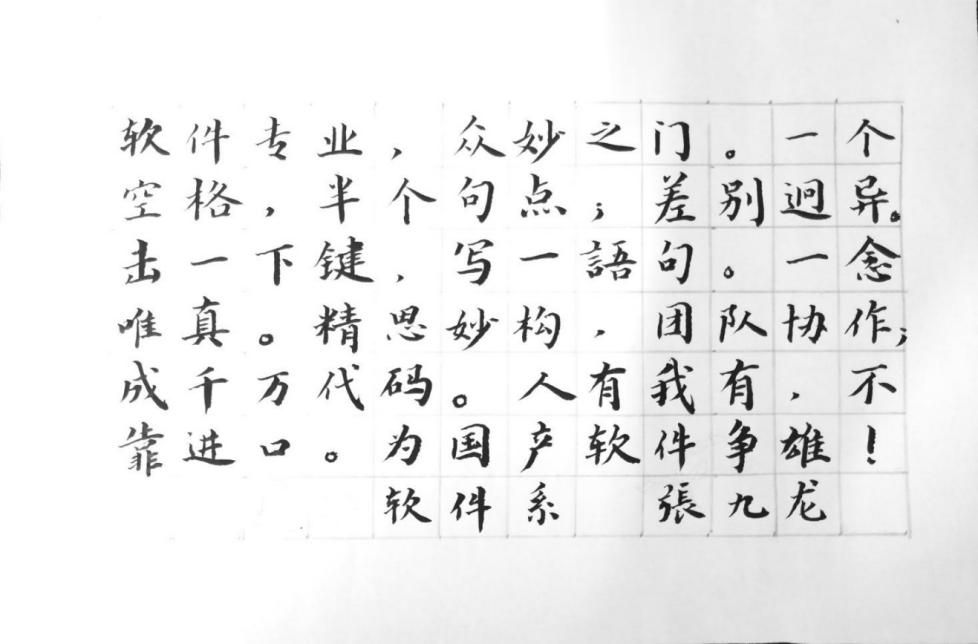 软件专业，众妙之门。一个
空格，半个句点；差别迥异。
击一下键，写一語句。一念
唯真。精思妙构，团队协作；
成千万代码。人有我有，不
靠进口。为国产软件争雄！
软件系 張九龙